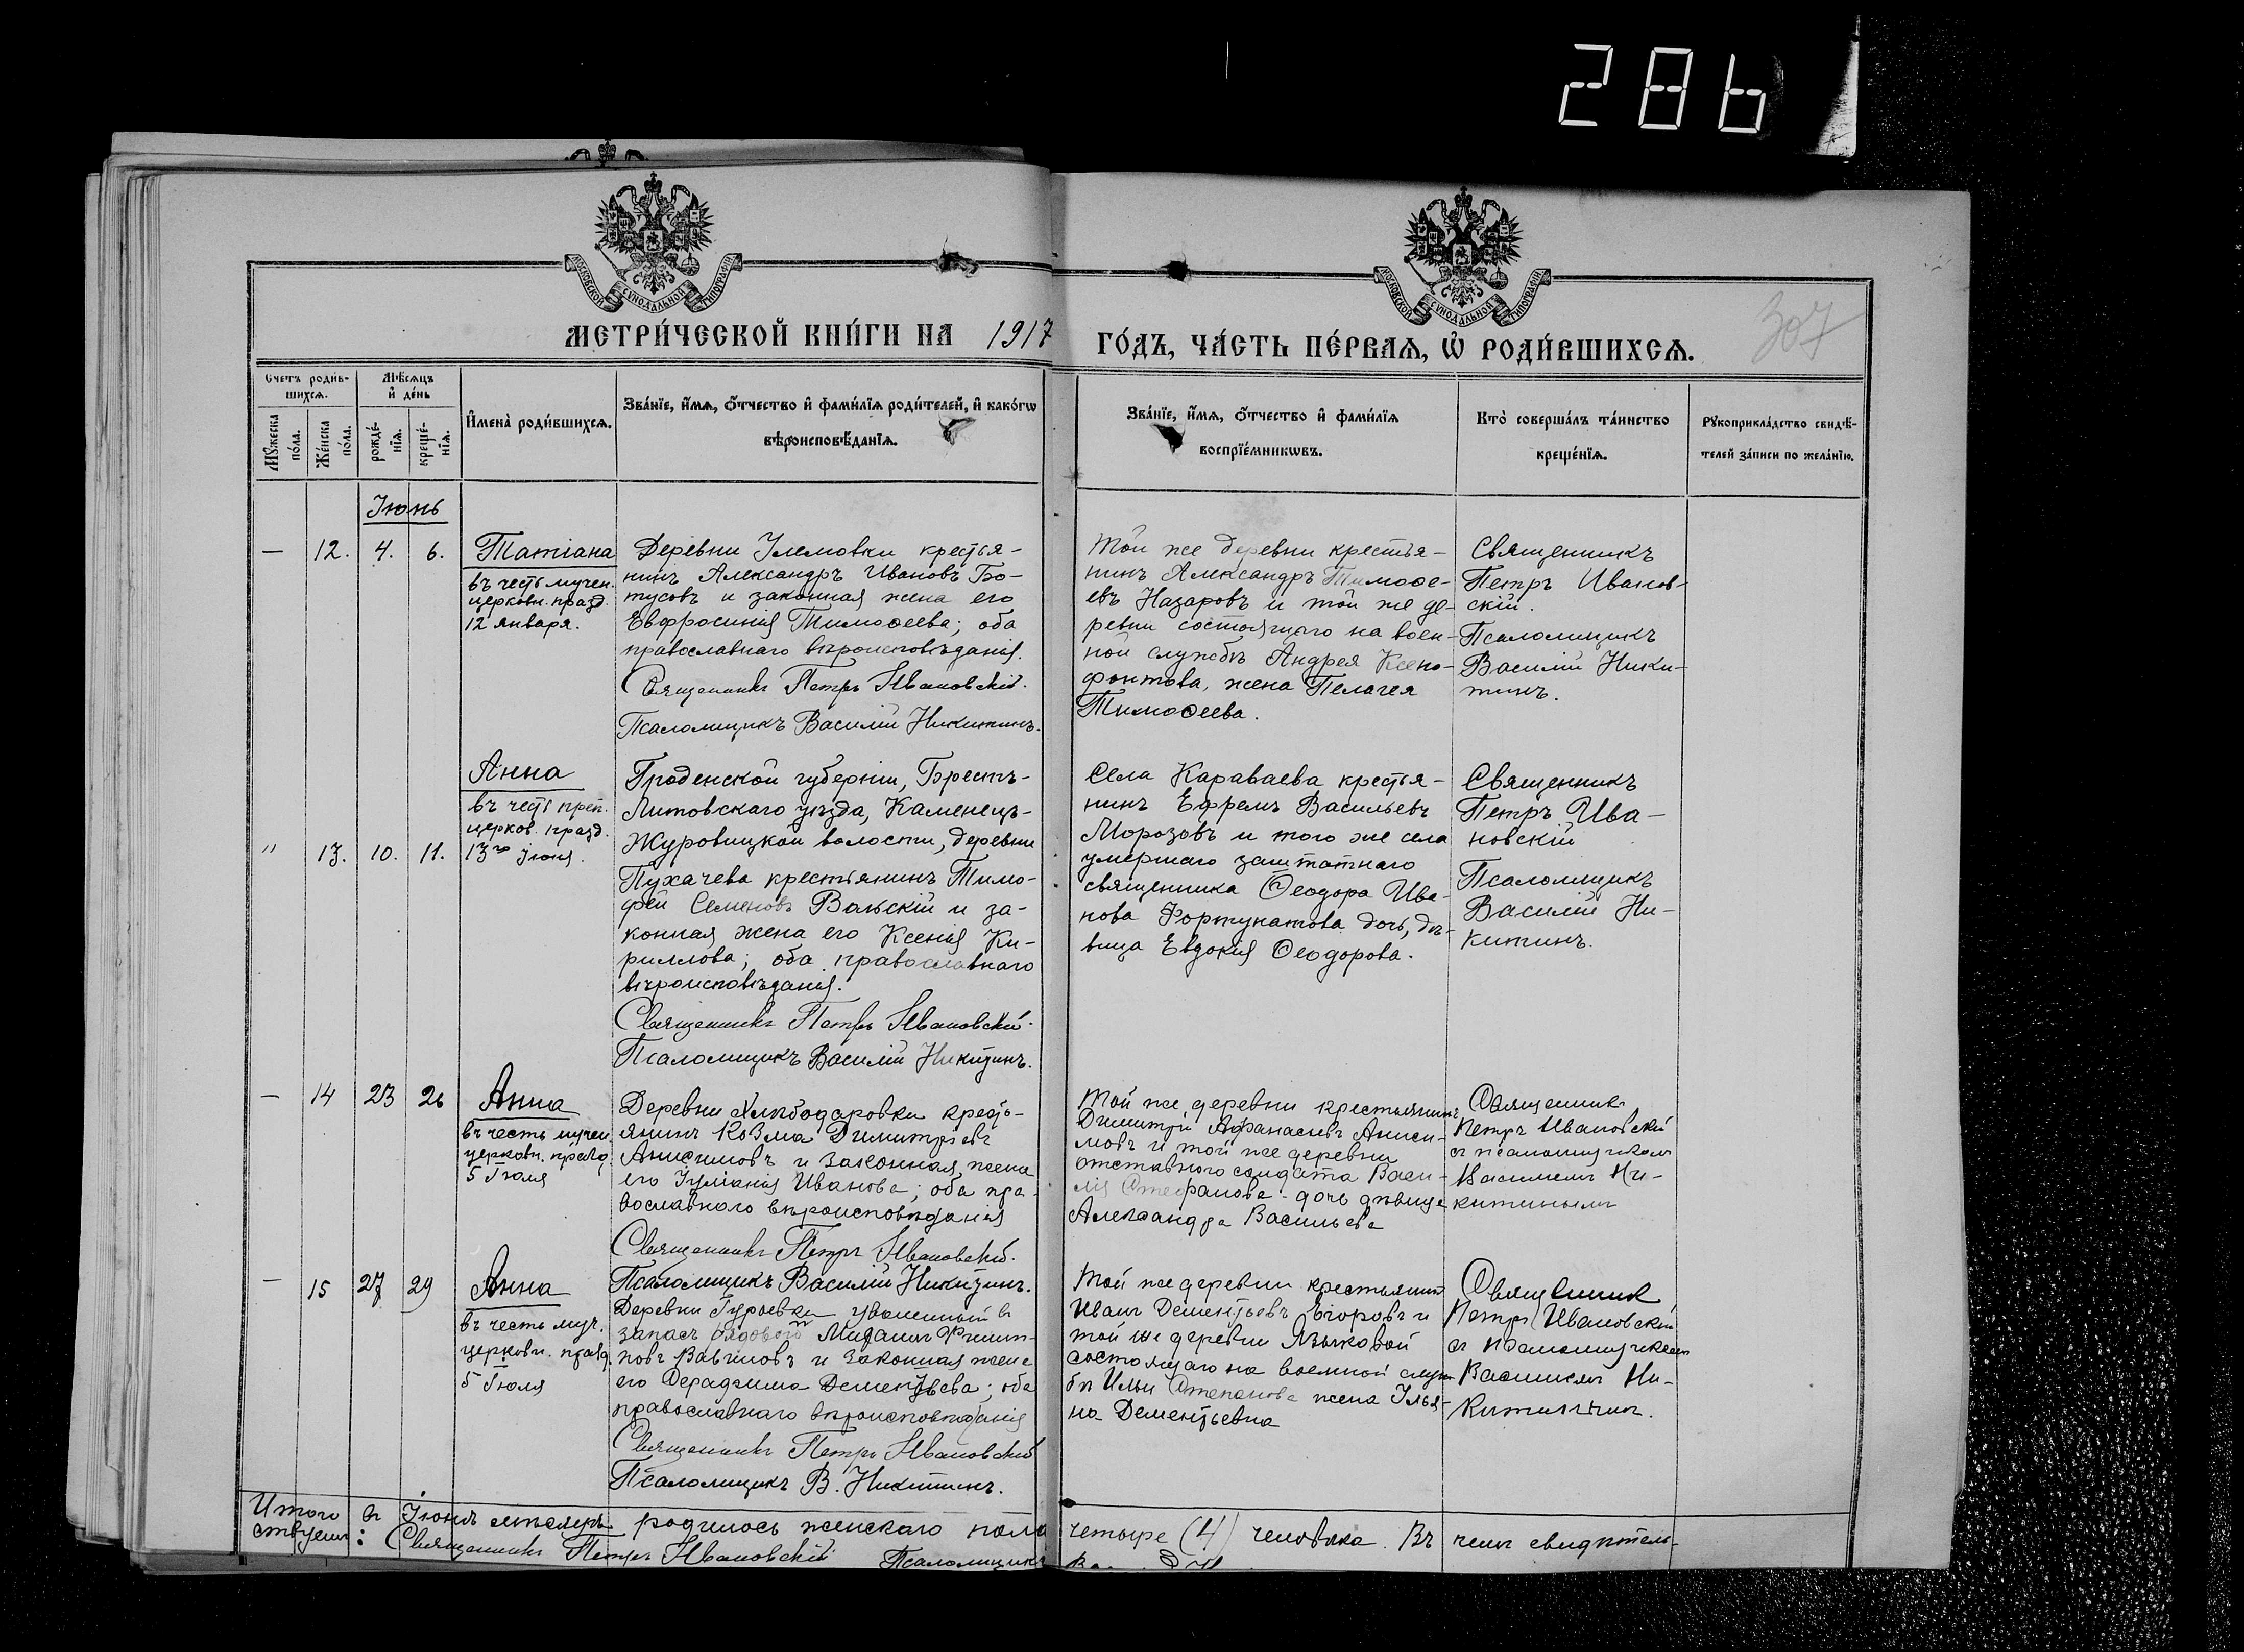 286
МОСКОВСКОЙ СѴНОДАЛЬНОЙ ТИПОГРАФІИ
МОСКОВСКОЙ СѴНОДАЛЬНОЙ ТИПОГРАФІИ
307
МЕТРИ́ЧЕСКОЙ КНИ́ГИ НА 1917 ГО́ДЪ, ЧА́СТЬ ПЕ́РВАѦ, Ѡ҆ РОДИ́ВШИХСѦ.
Счетъ роди́в-
шихсѧ.
Мѣ́сѧцъ
и҆ де́нь
И҆мена̀ роди́вшихсѧ.
Зва́нїе, и҆́мѧ, ѻ҆́тчество и҆ фами́лїѧ роди́телей, и҆ како́гѡ
вѣроисповѣ́данїѧ.
Зва́нїе, и҆́мѧ, ѻ҆́тчество и҆ фами́лїѧ
воспрїе́мникѡвъ.
Кто̀ соверша́лъ та́инство
креще́нїѧ.
Рꙋкоприкла́дство свидѣ́-
телей за́писи по жела́нїю.
Мꙋ́жеска
по́ла.
Же́нска
по́ла.
рожде́-
нїѧ.
креще́-
нїѧ.
Іюнь
— 12. 4. 6.
Татіана
въ честь мучен.
церковн. празд.
12 января.
Деревни крестья-
нинъ Александръ Ивановъ Бо-
тусовъ и законная жена его
Евфросинія Тимоѳеева; оба
православнаго вѣроисповѣданія.
Священникъ Петръ Ивановскій.
Псаломщикъ Василій Никитинъ.
Той же деревни крестья-
нинъ Александръ Тимоѳе-
евъ Назаровъ и той же де-
ревни состоящаго на воен-
ной службѣ Андрея Ксено-
фонтова, жена Пелагея
Тимоѳеева.
Священникъ
Петръ Иванов-
скій.
Псаломщикъ
Василій Ники-
тинъ.
" 13. 10. 11.
Анна
въ честь преп.
церков. празд.
13го Іюня.
Гроденской губерніи, Брестъ-
Литовскаго уѣзда, Каменецъ-
Журовицкой волости, деревни
Пухачева крестьянинъ Тимо-
фей Семеновъ Вольскій и за-
конная жена его Ксенія Ки-
риллова; оба православнаго
вѣроисповѣданія.
Священникъ Петръ Ивановскій.
Псаломщикъ Василій Никитинъ.
Села Караваева крестья-
нинъ Ефремъ Васильевъ
Морозовъ и того же села
умершаго заштатнаго
священника Ѳеодора Ива-
нова Фортунатова дочь, дѣ-
вица Евдокія Ѳеодорова.
Священникъ
Петръ Ива-
новскій
Псаломщикъ
Василій Ни-
китинъ.
— 14 23 26
Анна
въ честь мучен.
церковн. празд.
5 Іюля
Деревни Хлѣбодаровки кресть-
янинъ Козма Димитріевъ
Анисимовъ и законная жена
его Іуліанія Иванова; оба пра-
вославнаго вѣроисповѣданія
Священникъ Петръ Ивановскій.
Псаломщикъ Василій Никитинъ.
Той же деревни крестьянинъ
Димитрій Афанасьевъ Аниси-
мовъ и той же деревни
отставного солдата Васи-
лія Стефанова дочь дѣвица
Александра Васильева
Священникъ
Петръ Ивановскій
съ псаломщикомъ
Василіемъ Ни-
китинымъ
— 15 27 29
Анна
въ честь муч.
церковн. празд.
5 Іюля
Деревни Гурьевки уволенный въ
запасъ рядовой Филип-
повъ Вавиловъ и законная жена
его Дементьева; оба
православнаго вѣроисповѣданія
Священникъ Петръ Ивановскій
Псаломщикъ В. Никитинъ.
Той же деревни крестьянинъ
Иванъ Дементьевъ Егоровъ и
той же деревни Языковой
состоящаго на военной служ-
бѣ Ильи Степанова жена Улья-
на Дементьевна
Священникъ
Петръ Ивановскій
съ псаломщикомъ
Василіемъ Ни-
китинымъ.
Итого въ Іюнѣ мѣсяцѣ родилось женскаго пола четыре (4) человѣка. Въ чемъ свидѣтель-
ствуемъ: Священникъ Петръ Ивановскій Псаломщикъ